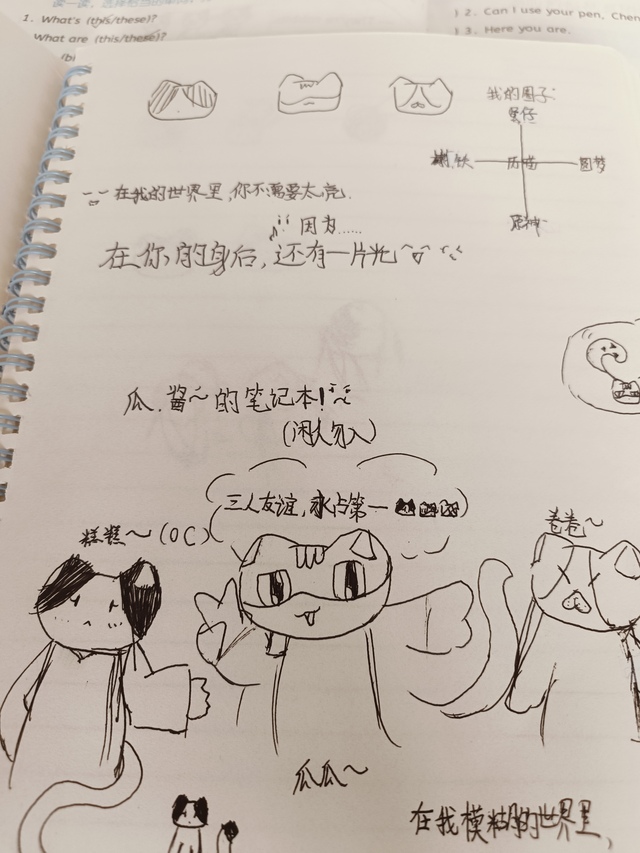 1. What's (this/these)?
What are (this/these)?
2. Can I use your pen, Chen
3. Here you are.
我的圈子:
蛋仔
崩.铁 历喵 圆梦
原神
在我的世界里,你不需要太亮.
因为……
在你的身后,还有一片光
瓜.酱~的笔记本!
(闲人勿入)
三人友谊,永占第一
糕糕~(OC)
卷卷~
瓜瓜~
在我模糊的世界里,